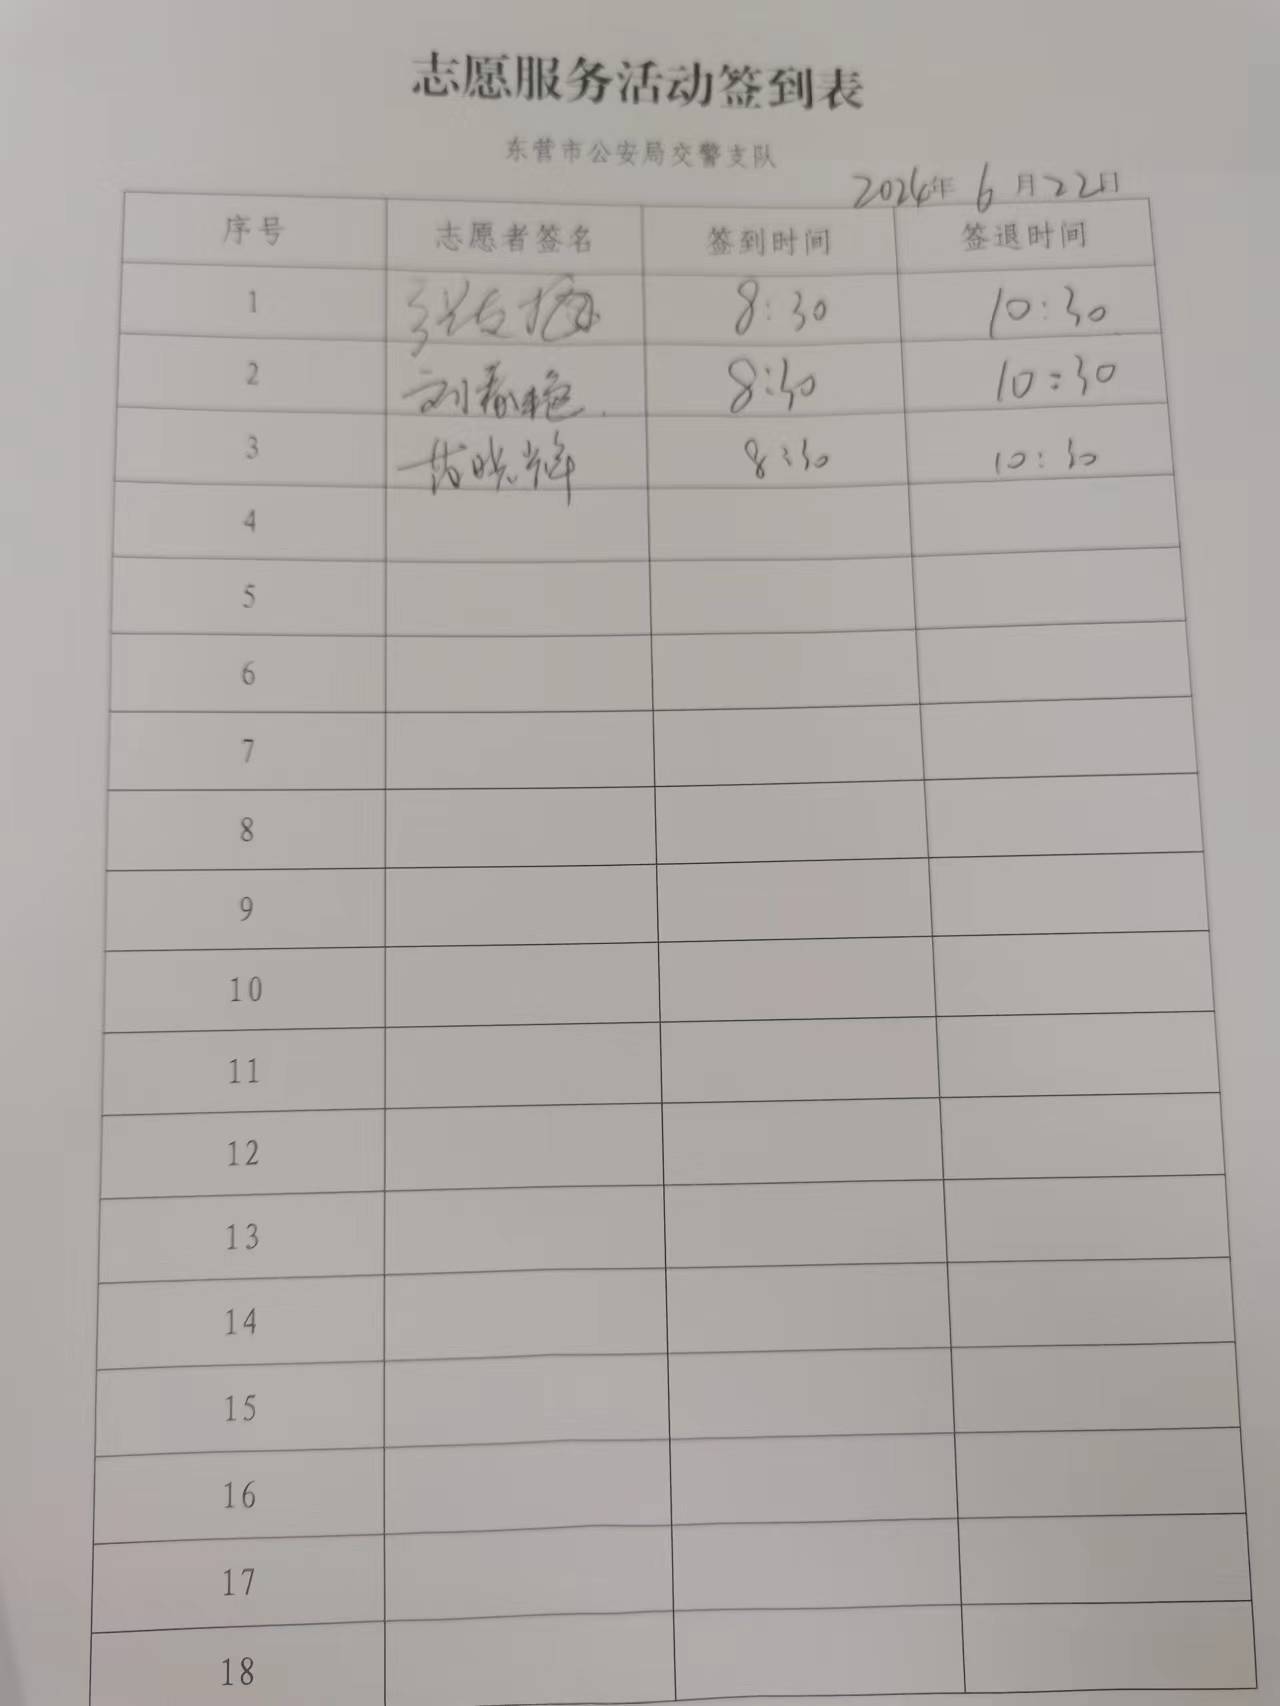 志愿服务活动签到表
东营市公安局交警支队
2024年 6 月 22日
序号 志愿者签名 签到时间 签退时间
1 8:30 10:30
2 刘春艳 8:30 10:30
3 晓辉 8:30 10:30
4
5
6
7
8
9
10
11
12
13
14
15
16
17
18